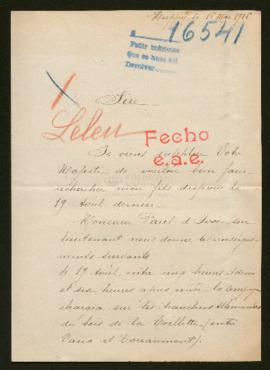 le 15 Mai 1916
16541
Pedir informes
que se hace all
Devolver
Sire
Leleu
Fecho
e.a.e.
Je viens supplier Votre
Majesté de vouloir bien faire
rechercher mon fils disparu le
19 Août dernier.
Monsieur d' son
lieutenant nous donne les renseigne-
ments suivants
le 19 Août, entre cinq heures
et six heures après midi, la compagnie
chargea sur les tranchées allemandes
du bois de la (entre
et